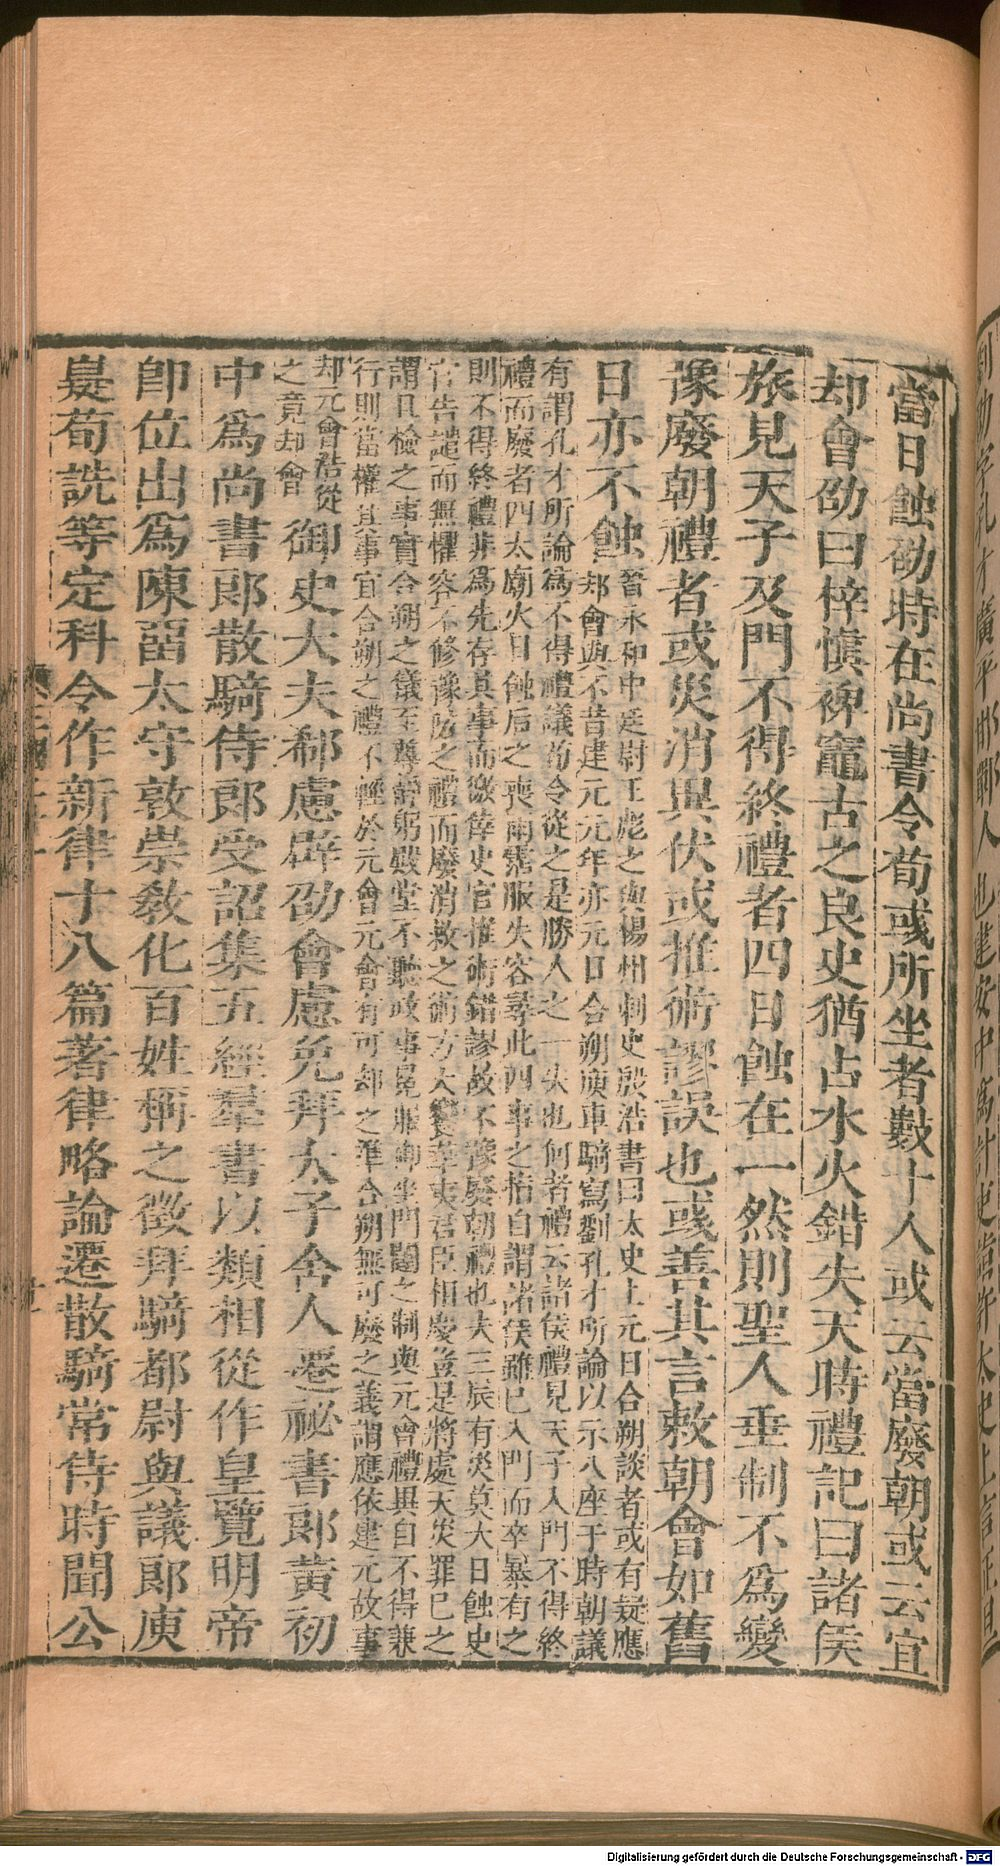 當日蝕劭時在尚書令荀彧所坐者數十人或云當廢朝或云宜
却會劭曰梓愼裨竈古之良史猶占水火錯失天時禮記曰諸侯
旅見天子及門不得終禮者四日蝕在一然則聖人垂制不爲變
豫廢朝禮者或災消異伏或推術謬誤也彧善其言敕朝會如舊
日亦不蝕
晉永和中廷尉王彪之與楊州刺史殷浩書曰太史上元日合朔談者或有疑應
却會與不昔建元元年亦元日合朔庾車騎寫劉孔才所論以示八座于時朝議
有謂孔才所論爲不得禮議荀令從之是勝人之一失也何者禮云諸侯禮見天子入門不得終
禮而廢者四太廟火日蝕后之喪雨霑服失容尋此四事之指自謂諸侯雖已入門而卒暴有之
則不得終禮非爲先存其事而徼倖史官推術錯謬故不豫廢朝禮也夫三辰有災莫大日蝕史
官告譴而無懼容不修豫防之禮而廢消救之術方大饗華夷君臣相慶豈是將處天災罪已之
謂且檢之事實合朔之儀至尊靜躬殿堂不聽政事冕服御坐門闥之制與元會禮異自不得兼
行則當權其事宜合朔之禮不輕於元會元會有可却之準合朔無可廢之義謂應依建元故事
却元會浩從
之竟却會
御史大夫郗慮辟劭會慮免拜太子舍人遷祕書郎黃初
中爲尚書郎散騎侍郎受詔集五經羣書以類相從作皇覽明帝
卽位出爲陳畱太守敦崇敎化百姓稱之徵拜騎都尉與議郎庾
嶷荀詵等定科令作新律十八篇著律略論遷散騎常侍時聞公
Digitalisierung gefördert durch die Deutsche Forschungsgemeinschaft - DFG